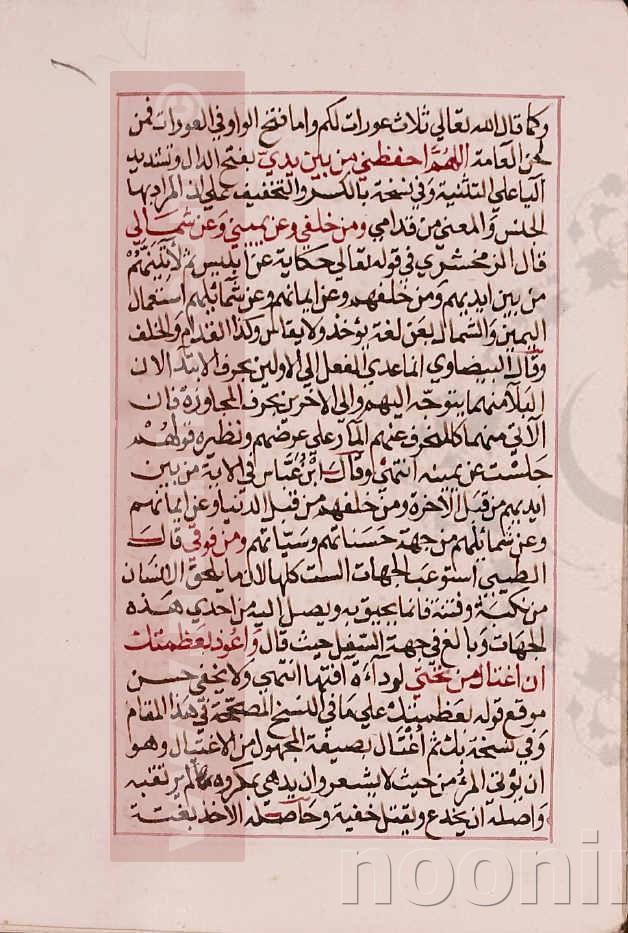 وكما قال الله تعالي ثلاث عورات لكم واما فتح الواو في العورات فمن
لحن العامة اللهم احفظني من بين يدي بفتح الدال وتشديد
اليا علي التثنية وفي نسخة بالكسر والتخفيف علي ان المراد بها
الجنس والمعني من قدامي ومن خلفي وعن يميني وعن شمالي
قال الزمخشري في قوله تعالي حكاية عن ابليس ثم لأتينهم
من بين ايديهم ومن خلفهم وعن ايمانهم وعن شمائلهم استعمال
اليمين والشمال بعن لغة يوخذ ولا يقاس وكذا القدام والخلف
وقال البيضاوي انما عدي الفعل الي الاولين بحرف الابتدا لان
منهما يتوجه اليهم والي الاخرين بحرف المجاوزة فان
الآتي منهما كالمنحرف عنهم المآر علي عرضهم ونظيره قولهم
جلست عن يمينه انتهي وقال ابن عباس في الاية من بين
ايديهم من قبل الآخرة ومن خلفهم من قبل الدنيا وعن ايمانهم
وعن شمائلهم من جهة حسناتهم وسياتهم ومن فوقي قال
الطيبي استوعب الجهات الست كلها لان ما يلحق الانسان
من نكبة وفتنة فانما يحيق به ويصل اليه من احدي هذه
الجهات وبالغ في جهة السفل حيث قال واعوذ بعظمتك
ان اغتال من تحتي لرداءة افتها انتهي ولا يخفي حسن
موقع قوله بعظمتك علي ما في النسخ المصححة في هذا المقام
وفي نسخة بك ثم أغتال بصيغة المجهول من الاغتيال وهو
ان يؤتي المرء من حيث لا يشعر وان يدهي بمكروه لم يرتقبه
واصله ان يخدع ويقتل خفية وحاصله الاخذ بغتة
noonin